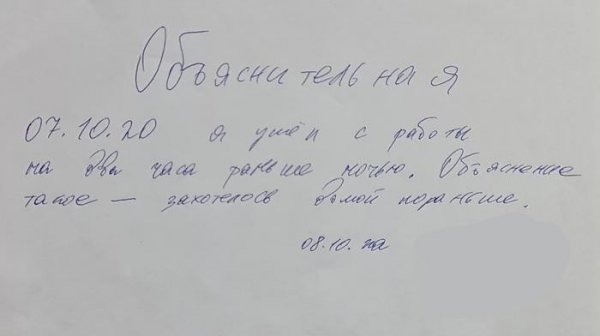 Объяснительная
07.10.20 я ушёл с работы
на два часа раньше ночью. Объяснение
такое — захотелось домой пораньше.
08.10.